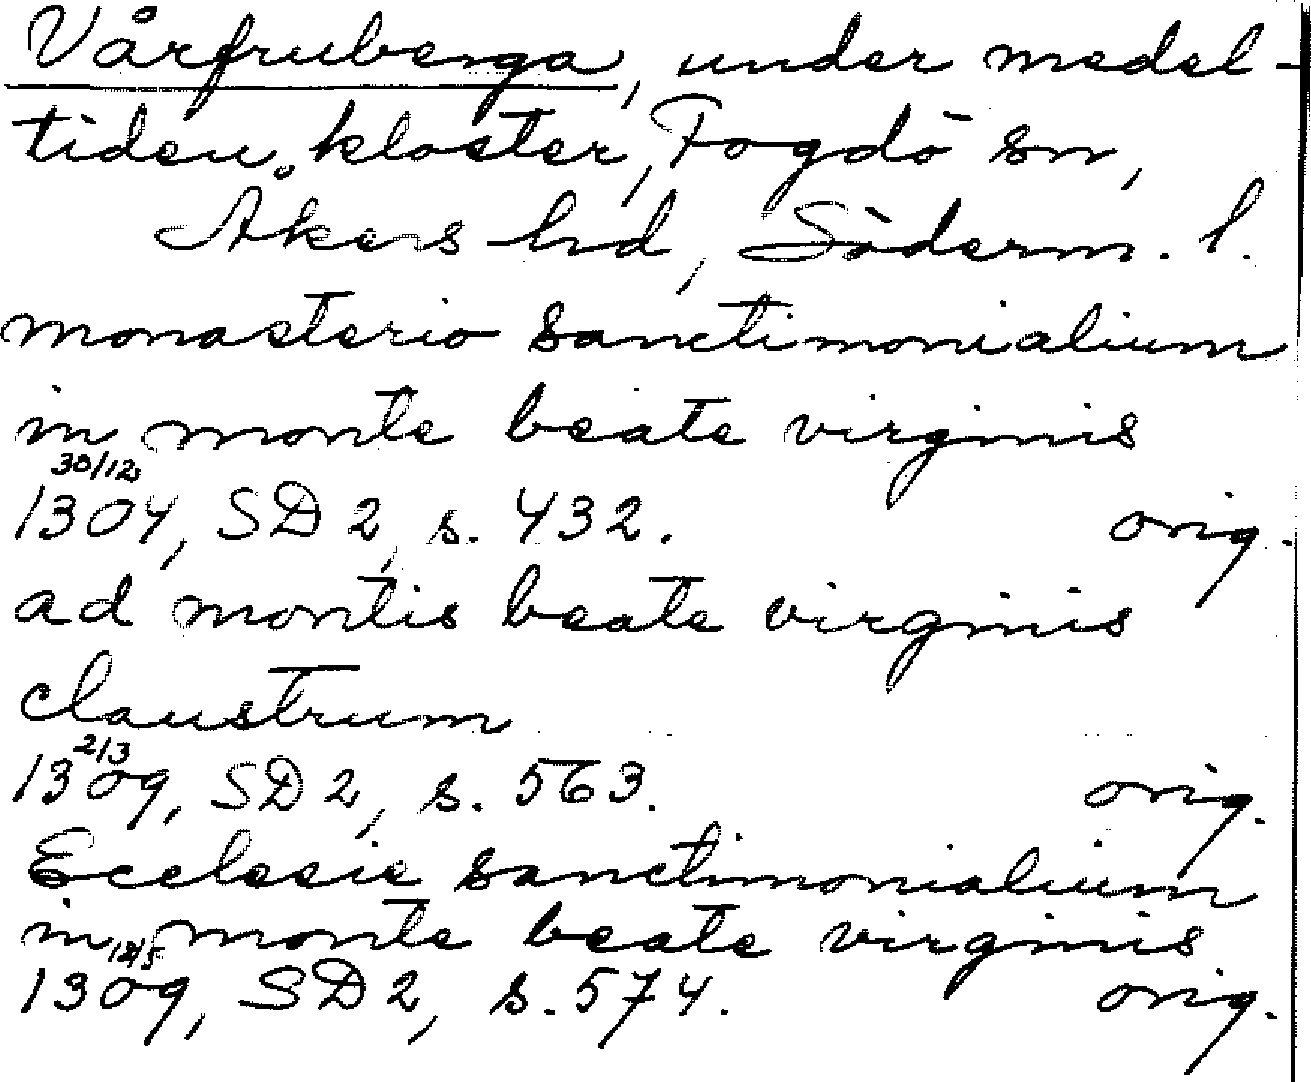 Vårfruberga, under medel-
tiden kloster, Fogdö sn,
Åkers hd, Söderm. l.
monasterio sanctimonialium
in monte beate virginis
30/12
1304, SD 2, s. 432. orig.
ad montis beate virginis
claustrum
2/3
1309, SD 2, s. 563. orig.
Ecclesie sanctimonialium
in monte beate virginis
1309, SD 2, s. 574. orig.